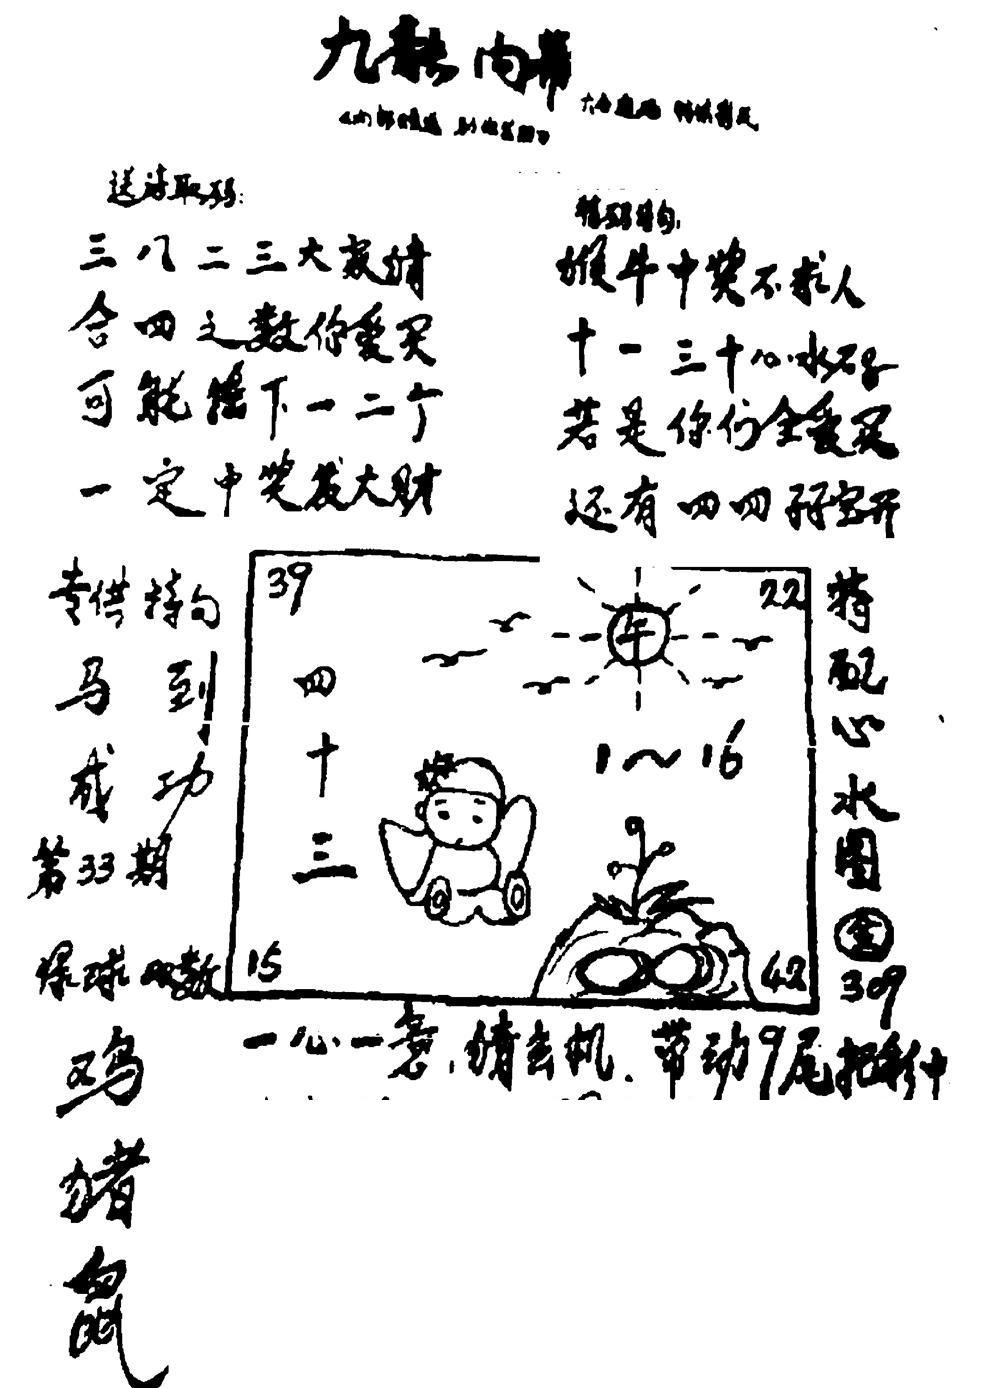 九龍内幕
送诗取码:
三八二三大家猜
合四之数你爱买
可能摇下一二个
一定中奖发大财
猴牛中奖不求人
十一三十心水名子
若是你们全爱买
还有四四号字开
专供特句
马到
成功
第33期
绿球双数
鸡
猪
鼠
39
22
午
四十三
1～16
9
0
15
42
特配心水图
309
一心一意,猜玄机.带动9尾把彩中